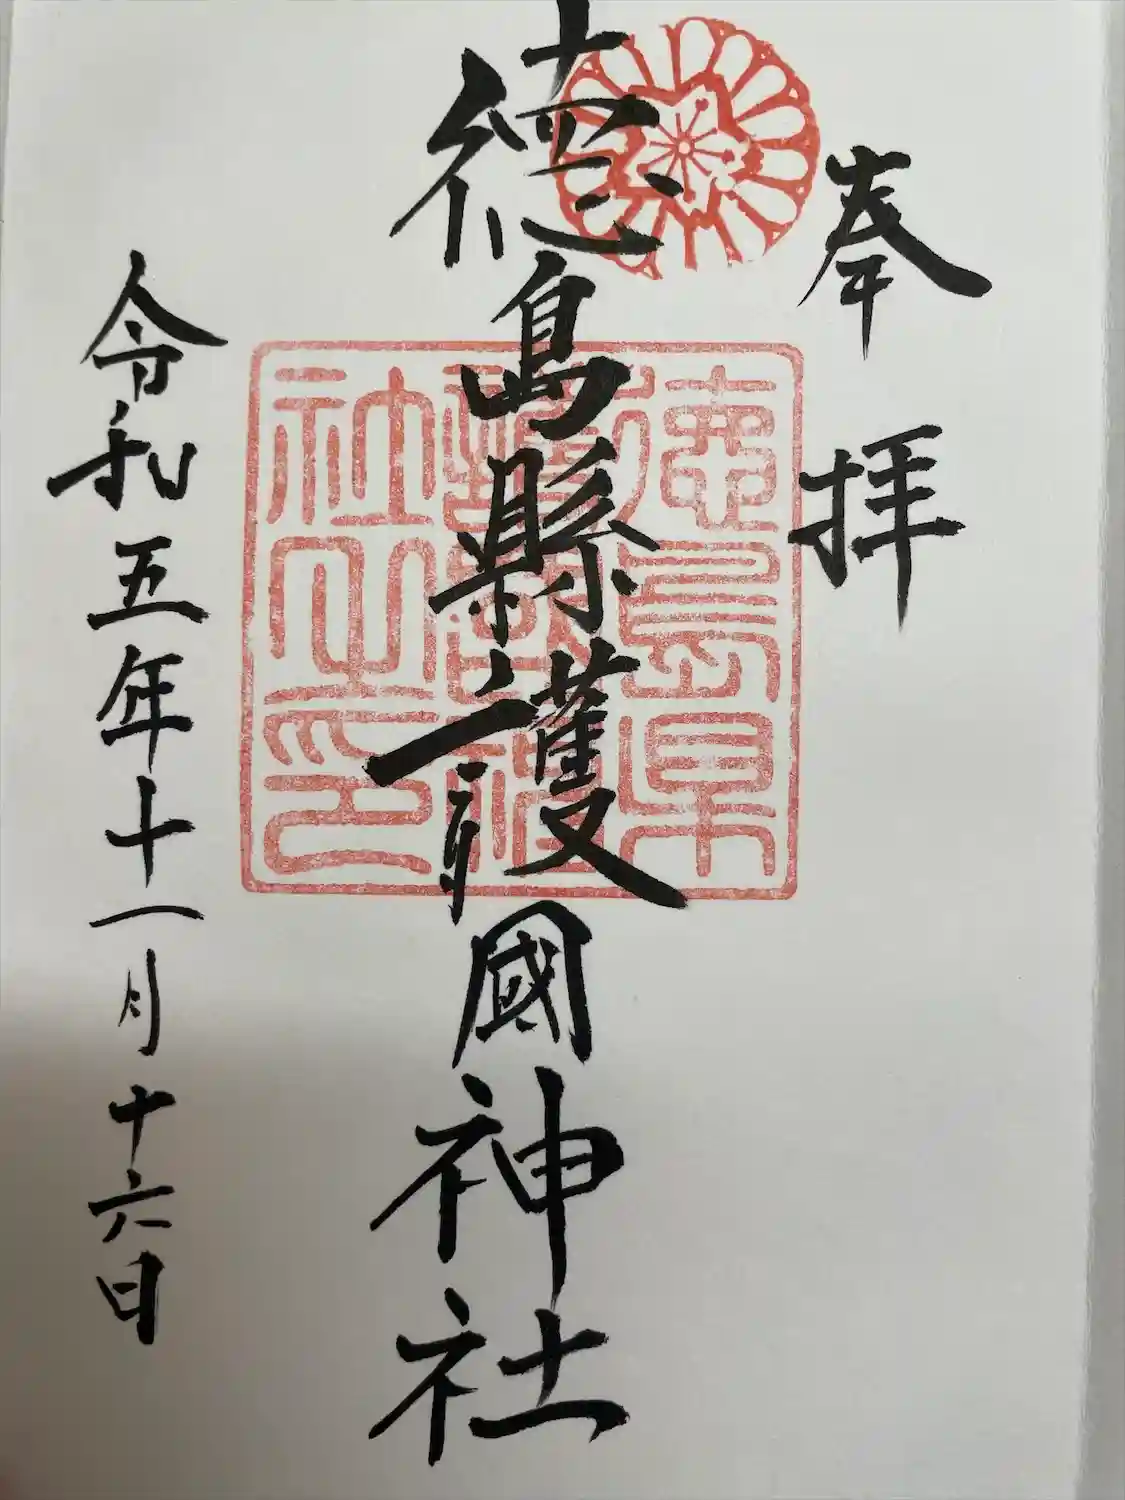 奉拝
徳島縣護國神社
徳島県
護國神
社之印
令和五年十一月十六日